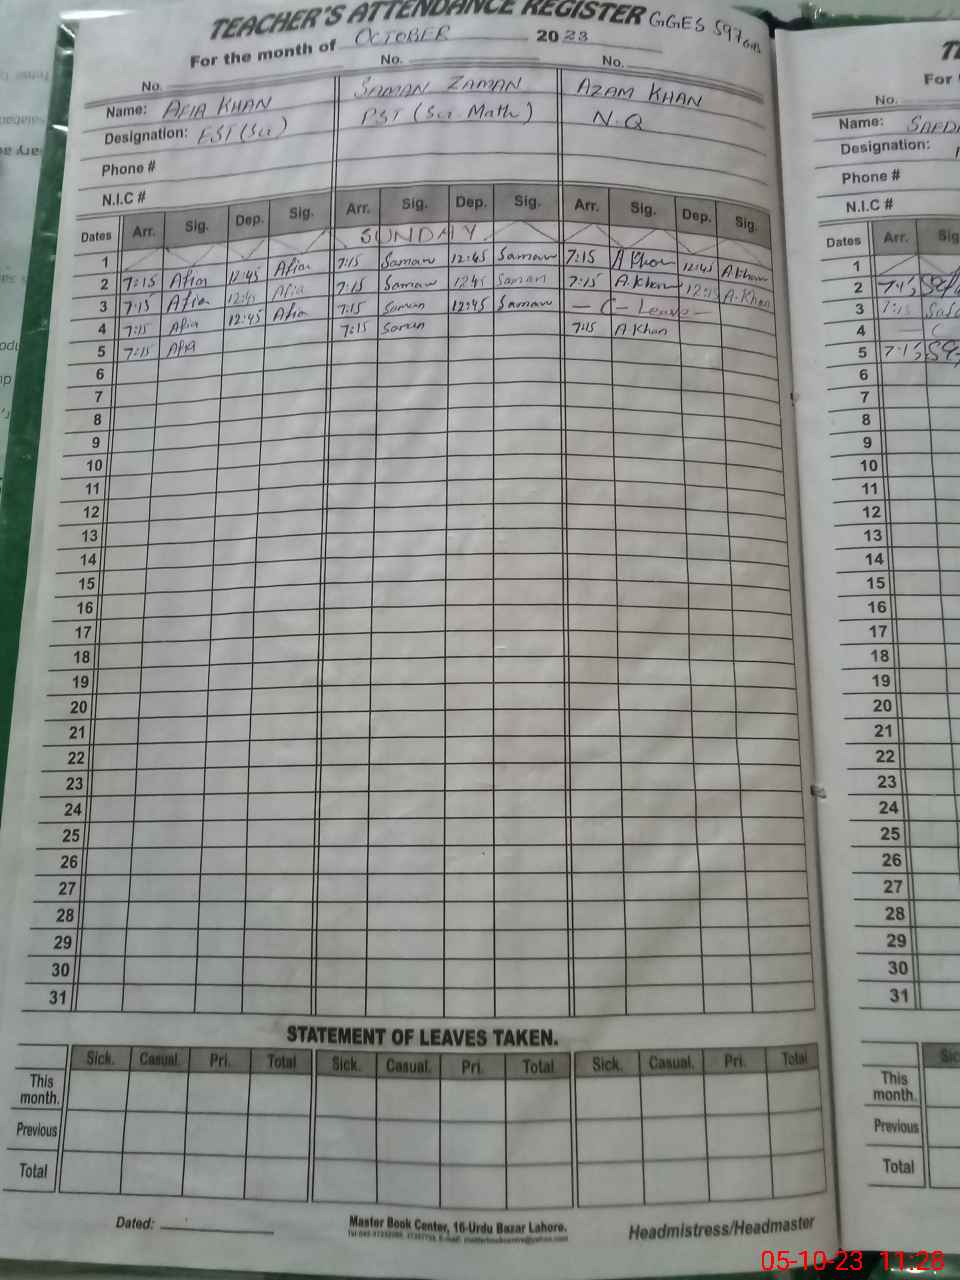 TEACHER'S ATTENDANCE REGISTER GGES 597 GB
For the month of OCTOBER 2023
No. No. No.
Name: AFIA KHAN SAMAN ZAMAN AZAM KHAN
Designation: EST (Sci) PST (Sci. Math) N.Q
Phone #
N.I.C #
Dates Arr. Sig. Dep. Sig. Arr. Sig. Dep. Sig. Arr. Sig. Dep. Sig.
1 SUNDAY
2 7:15 Afia 12:45 Afia 7:15 Saman 12:45 Saman 7:15 A Khan 12:45 A Khan
3 7:15 Afia 12:45 Afia 7:15 Saman 12:45 Saman 7:15 A.Khan 12:45 A.Khan
4 7:15 Afia 12:45 Afia 7:15 Saman 12:45 Saman - C - Leave -
5 7:15 Afia 7:15 Saman 7:15 A Khan
6
7
8
9
10
11
12
13
14
15
16
17
18
19
20
21
22
23
24
25
26
27
28
29
30
31
STATEMENT OF LEAVES TAKEN.
Sick. Casual. Pri. Total Sick. Casual. Pri. Total Sick. Casual. Pri. Total
This month.
Previous
Total
Dated:
Master Book Center, 16-Urdu Bazar Lahore.
Headmistress/Headmaster
For
No.
Name:
Designation:
Phone #
N.I.C #
Dates Arr. Sig
1
2 7:15
3 7:15
4 C
5 7:15
6
7
8
9
10
11
12
13
14
15
16
17
18
19
20
21
22
23
24
25
26
27
28
29
30
31
This month.
Previous
Total
05-10-23 11:28